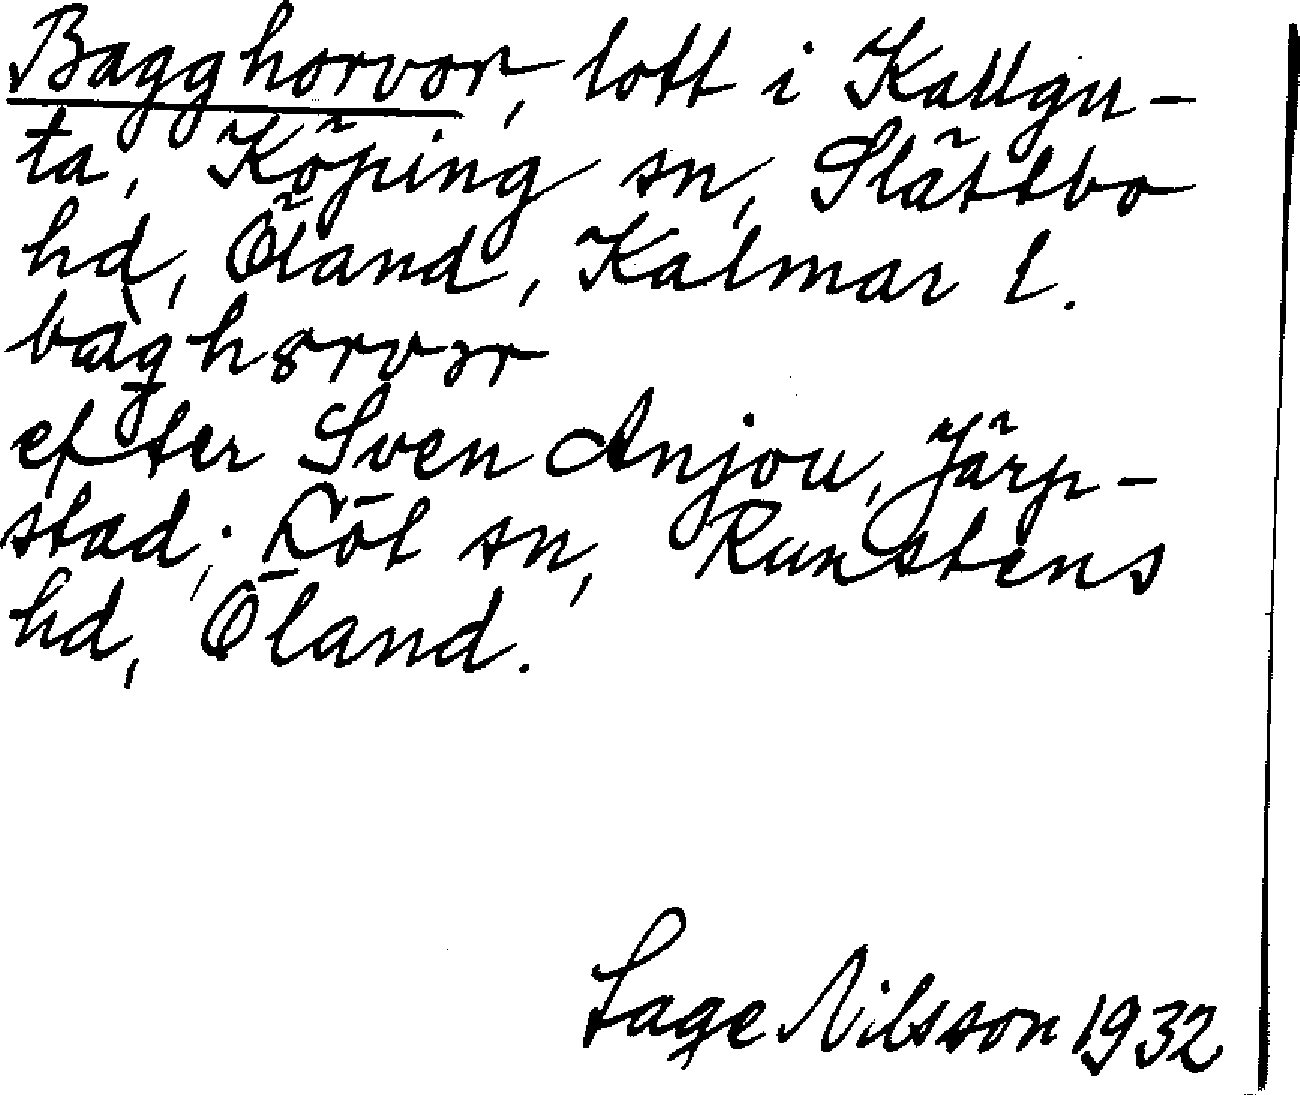 Bagghorvor, lott i Kallgu-
ta, Köping sn, Slättbo
hd, Öland, Kalmar l.
efter Sven Anjou, Järp-
stad; Löt sn, Runstens
hd, Öland.
Sage Nilsson 1932